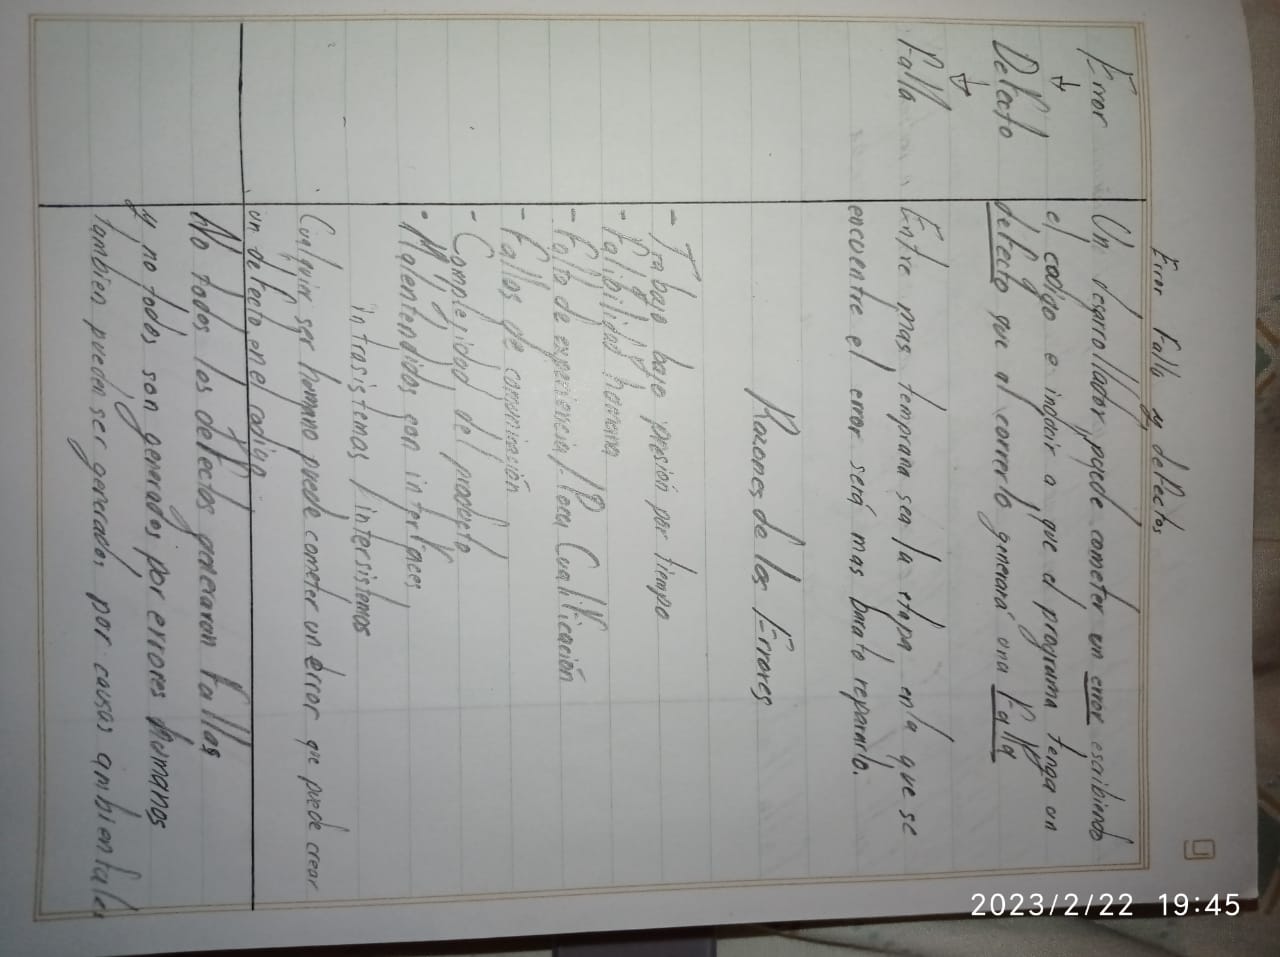 Error Falla y defectos
Error
↓
Defecto
↓
Falla
Un desarrollador puede cometer un error escribiendo
el codigo e inducir a que el programa tenga un
defecto que al correrlo generará una Falla
Entre mas temprana sea la etapa en la que se
encuentre el error será mas barato repararlo.
Razones de los Errores
- Trabajo bajo presión por tiempo
- Falibilidad humana
- Falta de experiencia / Poca Cualificación
- Fallos de comunicación
- Complejidad del producto
• Malentendidos con interfaces
intrasistemas / intersistemas
Cualquier ser humano puede cometer un error que puede crear
un defecto en el codigo
No todos los defectos generaran fallos
y no todos son generados por errores humanos
tambien pueden ser generados por causas ambientales
2023/2/22 19:45